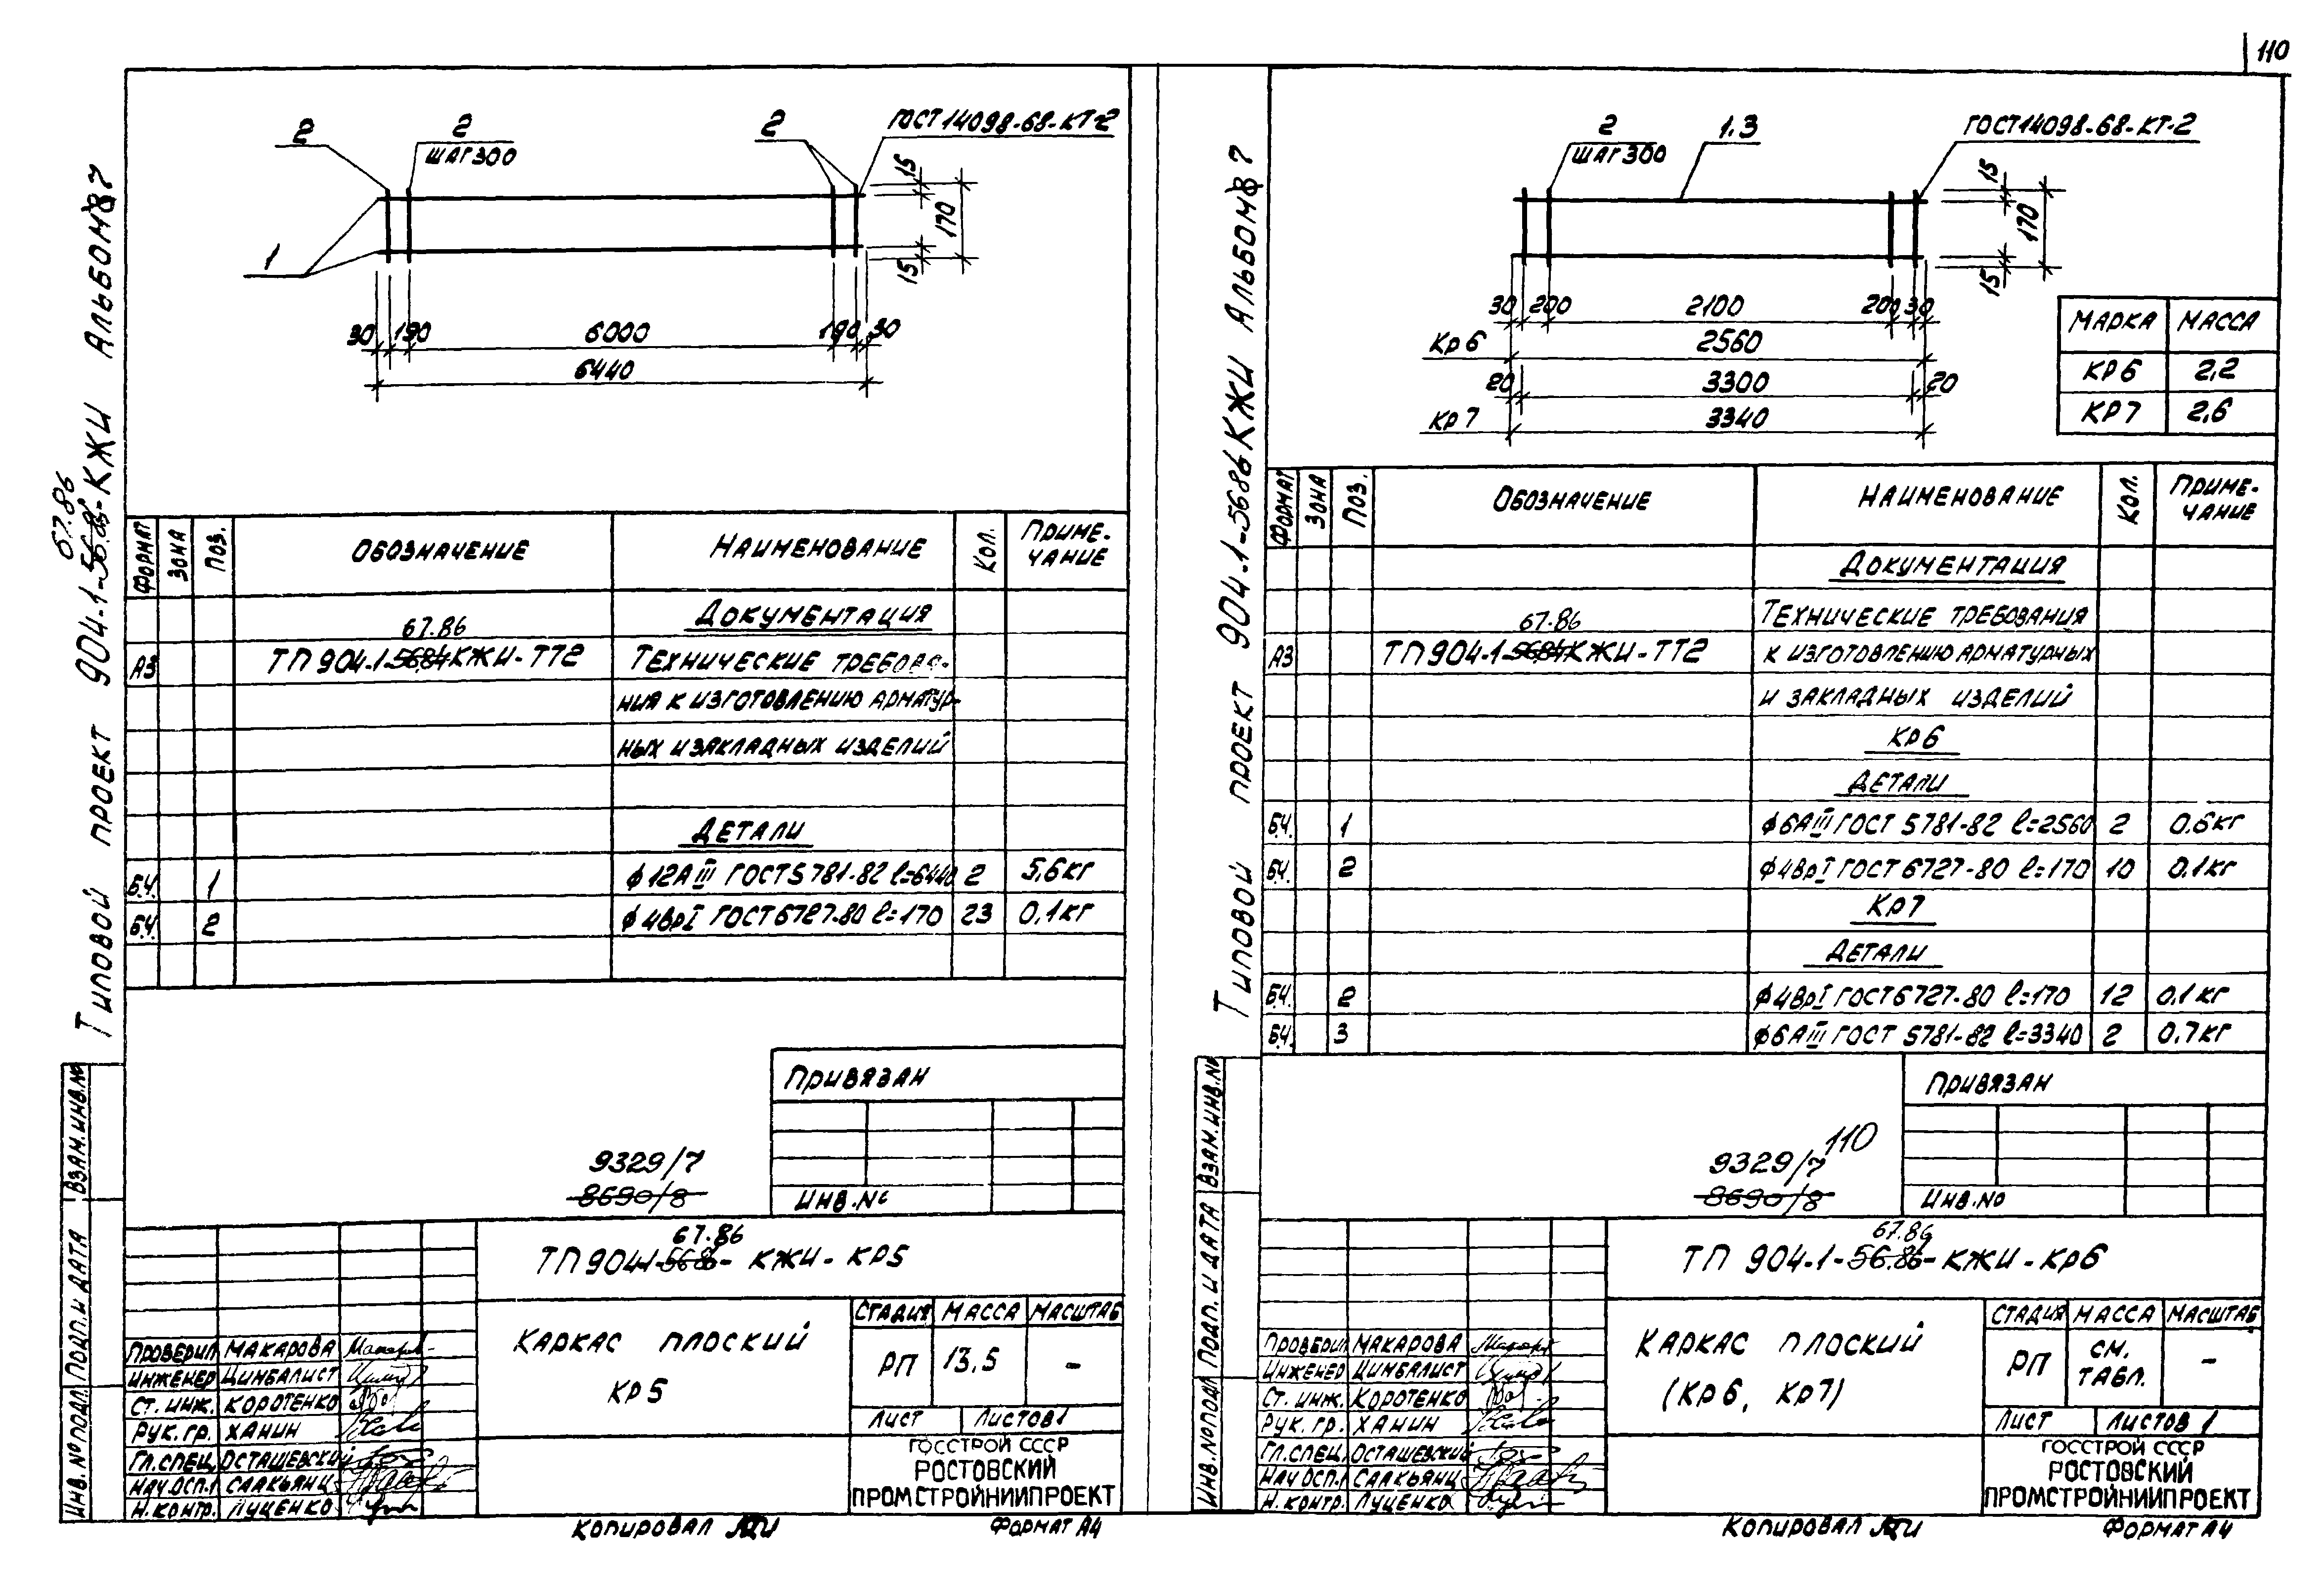 110
Типовой проект 904-1-56.86-КЖИ Альбом 8 7
67.86
2
2
ШАГ 300
2
ГОСТ 14098-68-КТ-2
1
15
170
15
30 190 6000 190 30
6440
ФОРМАТ ЗОНА ПОЗ. ОБОЗНАЧЕНИЕ НАИМЕНОВАНИЕ КОЛ. ПРИМЕ-
ЧАНИЕ
ДОКУМЕНТАЦИЯ
67.86
А3 ТП 904-1-56.84 КЖИ-ТТ2 ТЕХНИЧЕСКИЕ ТРЕБОВА-
НИЯ К ИЗГОТОВЛЕНИЮ АРМАТУР-
НЫХ И ЗАКЛАДНЫХ ИЗДЕЛИЙ
ДЕТАЛИ
Б.Ч. 1 ϕ12АIII ГОСТ 5781-82 ℓ=6440 2 5,6кг
Б.Ч. 2 ϕ4ВрI ГОСТ 6727-80 ℓ=170 23 0,1кг
ПРИВЯЗАН
ИНВ.№
9329/7
8690/8
67.86
ТП 904-1-56.86- КЖИ- КР5
КАРКАС ПЛОСКИЙ
КР5
СТАДИЯ МАССА МАСШТАБ
РП 13,5 –
ЛИСТ ЛИСТОВ 1
ГОССТРОЙ СССР
РОСТОВСКИЙ
ПРОМСТРОЙНИИПРОЕКТ
ПРОВЕРИЛ МАКАРОВА
ИНЖЕНЕР ЦИМБАЛИСТ
СТ. ИНЖ. КОРОТЕНКО
РУК. ГР. ХАНИН
ГЛ.СПЕЦ. ОСТАШЕВСКИЙ
НАЧ.ОСП.1 СААКЬЯНЦ
Н.КОНТР. ЛУЦЕНКО
ИНВ.№ПОДЛ. ПОДП.И ДАТА ВЗАМ.ИНВ.№
КОПИРОВАЛ ФОРМАТ А4
Типовой проект 904-1-5686 КЖИ Альбом 8 7
2
ШАГ 300
1.3
ГОСТ 14098-68-КТ-2
15
170
15
30 200 2100 200 30
КР6 2560
20 3300 20
КР7 3340
МАРКА МАССА
КР6 2,2
КР7 2,6
ФОРМАТ ЗОНА ПОЗ. ОБОЗНАЧЕНИЕ НАИМЕНОВАНИЕ КОЛ. ПРИМЕ-
ЧАНИЕ
ДОКУМЕНТАЦИЯ
67.86 ТЕХНИЧЕСКИЕ ТРЕБОВАНИЯ
А3 ТП 904-1-56.84 КЖИ-ТТ2 К ИЗГОТОВЛЕНИЮ АРМАТУРНЫХ
И ЗАКЛАДНЫХ ИЗДЕЛИЙ
КР6
ДЕТАЛИ
Б.Ч. 1 ϕ6АIII ГОСТ 5781-82 ℓ=2560 2 0,6кг
Б.Ч. 2 ϕ4ВрI ГОСТ 6727-80 ℓ=170 10 0,1кг
КР7
ДЕТАЛИ
Б.Ч. 2 ϕ4ВрI ГОСТ 6727-80 ℓ=170 12 0,1кг
Б.Ч. 3 ϕ6АIII ГОСТ 5781-82 ℓ=3340 2 0,7кг
ПРИВЯЗАН
ИНВ.№
110
9329/7
8690/8
67.86
ТП 904-1-56.86-КЖИ-КР6
КАРКАС ПЛОСКИЙ
(КР6, КР7)
СТАДИЯ МАССА МАСШТАБ
РП СМ. ТАБЛ. –
ЛИСТ ЛИСТОВ 1
ГОССТРОЙ СССР
РОСТОВСКИЙ
ПРОМСТРОЙНИИПРОЕКТ
ПРОВЕРИЛ МАКАРОВА
ИНЖЕНЕР ЦИМБАЛИСТ
СТ. ИНЖ. КОРОТЕНКО
РУК. ГР. ХАНИН
ГЛ.СПЕЦ. ОСТАШЕВСКИЙ
НАЧ.ОСП.1 СААКЬЯНЦ
Н.КОНТР. ЛУЦЕНКО
ИНВ.№ПОДЛ. ПОДП. И ДАТА ВЗАМ.ИНВ.№
КОПИРОВАЛ ФОРМАТ А4